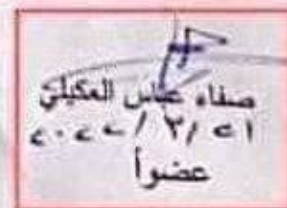 صفاء عباس العكيلي
٢٠٢٢ / ٣ / ٢١
عضواً